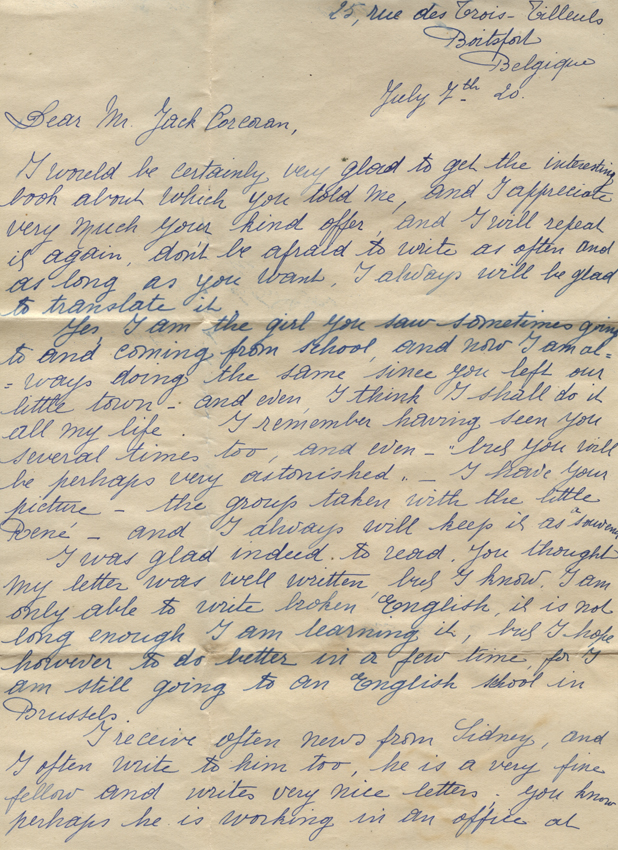 25, rue des Trois-Tilleuls
Boitsfort
Belgique
July 7th 20.
Dear Mr. Jack Corcoran,
I would be certainly very glad to get the interesting
book about which you told me, and I appreciate
very much your kind offer, and I will repeat
it again, don't be afraid to write as often and
as long as you want, I always will be glad
to translate it.
Yes, I am the girl you saw sometimes going
to and coming from school, and now I am al-
-ways doing the same since you left our
little town - and even, I think I shall do it
all my life. I remember having seen you
several times too, and even - "but you will
be perhaps very astonished". - I have your
picture - the group taken with the little
René - and I always will keep it as "souvenir
I was glad indeed to read, you thought
my letter was well written, but I know, I am
only able to write broken English, it is not
long enough I am learning it, but I hope
however to do better in a few time, for I
am still going to an English school in
Brussels.
I receive often news from Sidney, and
I often write to him too, he is a very fine
fellow and writes very nice letters; you know
perhaps he is working in an office at